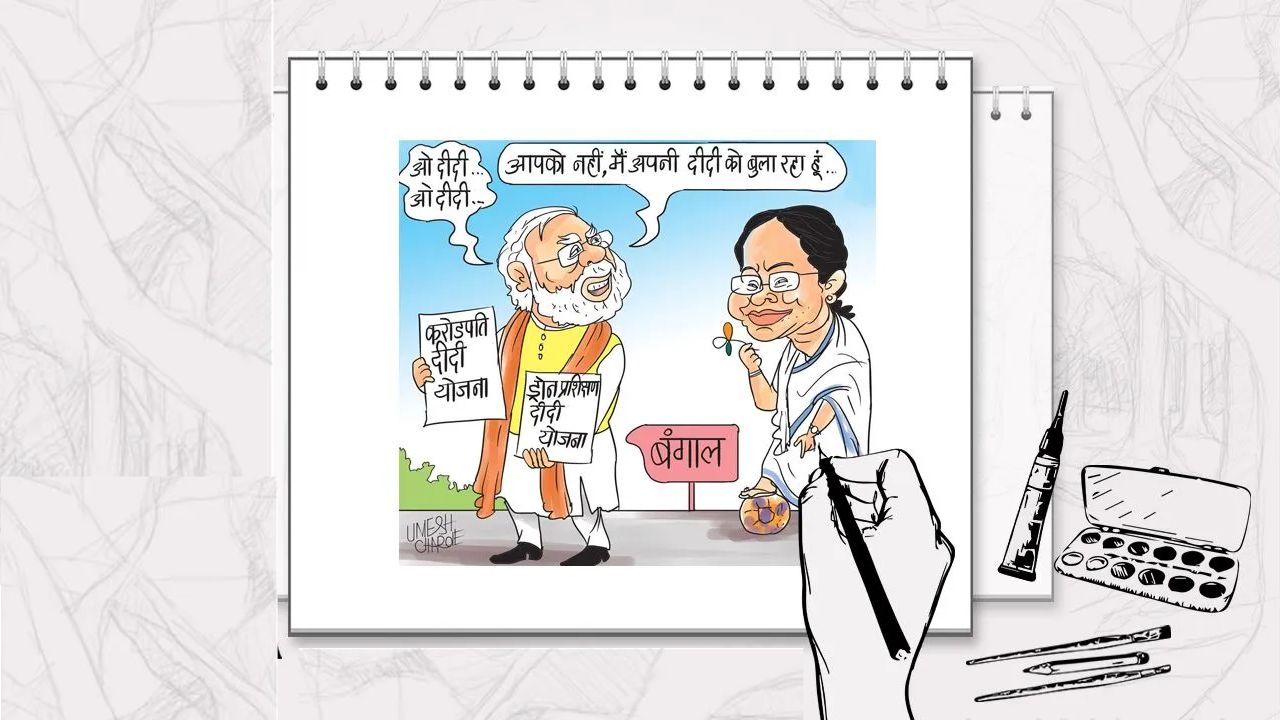 ओ दीदी...
ओ दीदी...
आपको नहीं, मैं अपनी दीदी को बुला रहा हूं...
करोड़पति
दीदी
योजना
ड्रोन प्रशिक्षण
दीदी
योजना
बंगाल
UMESH
CHARDE